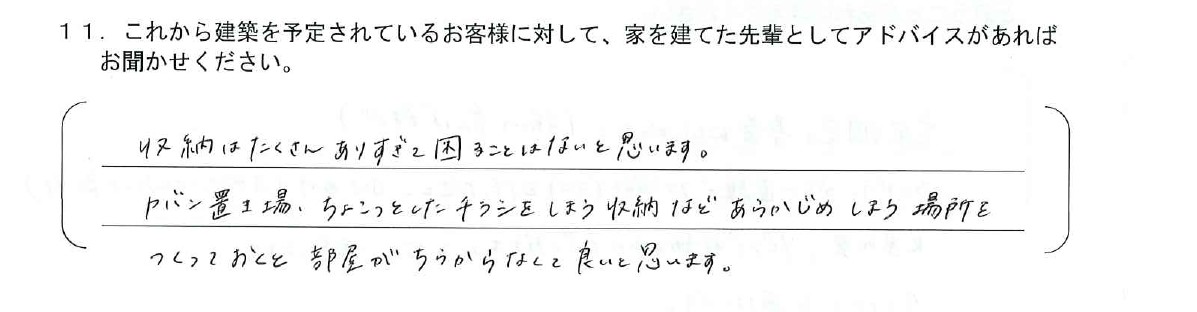 １１．これから建築を予定されているお客様に対して、家を建てた先輩としてアドバイスがあれば
お聞かせください。
収納はたくさんありすぎて困ることはないと思います。
カバン置き場、ちょこっとしたチラシをしまう収納などあらかじめしまう場所を
つくっておくと部屋がちらからなくて良いと思います。